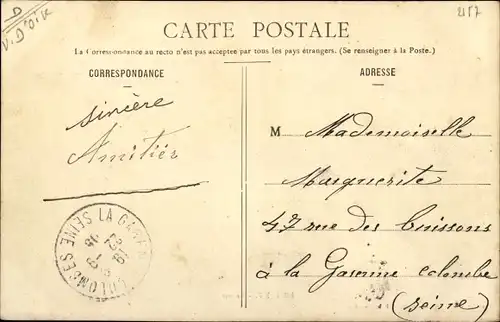 D
V. D'OISE
2157
CARTE POSTALE
La Correspondance au recto n'est pas acceptée par tous les pays étrangers. (Se renseigner à la Poste.)
CORRESPONDANCE
ADRESSE
Sincère
Amitiés
M Mademoiselle
Marguerite
47 rue des buissons
à la Garenne colombe
(seine)
LA GAREN
COLOMBES SEINE